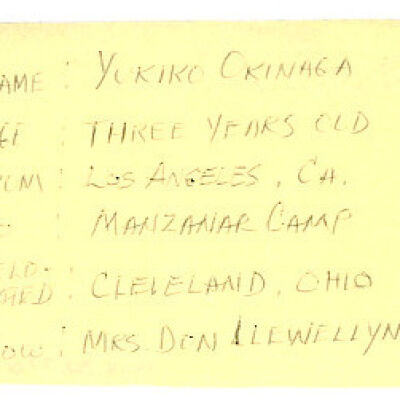 AME : YUKIKO OKINAGA
GE : THREE YEARS OLD
ROM : LOS ANGELES, CA.
: MANZANAR CAMP
ELO-
ATED : CLEVELAND, OHIO
OW : MRS. DON LLEWELLYN